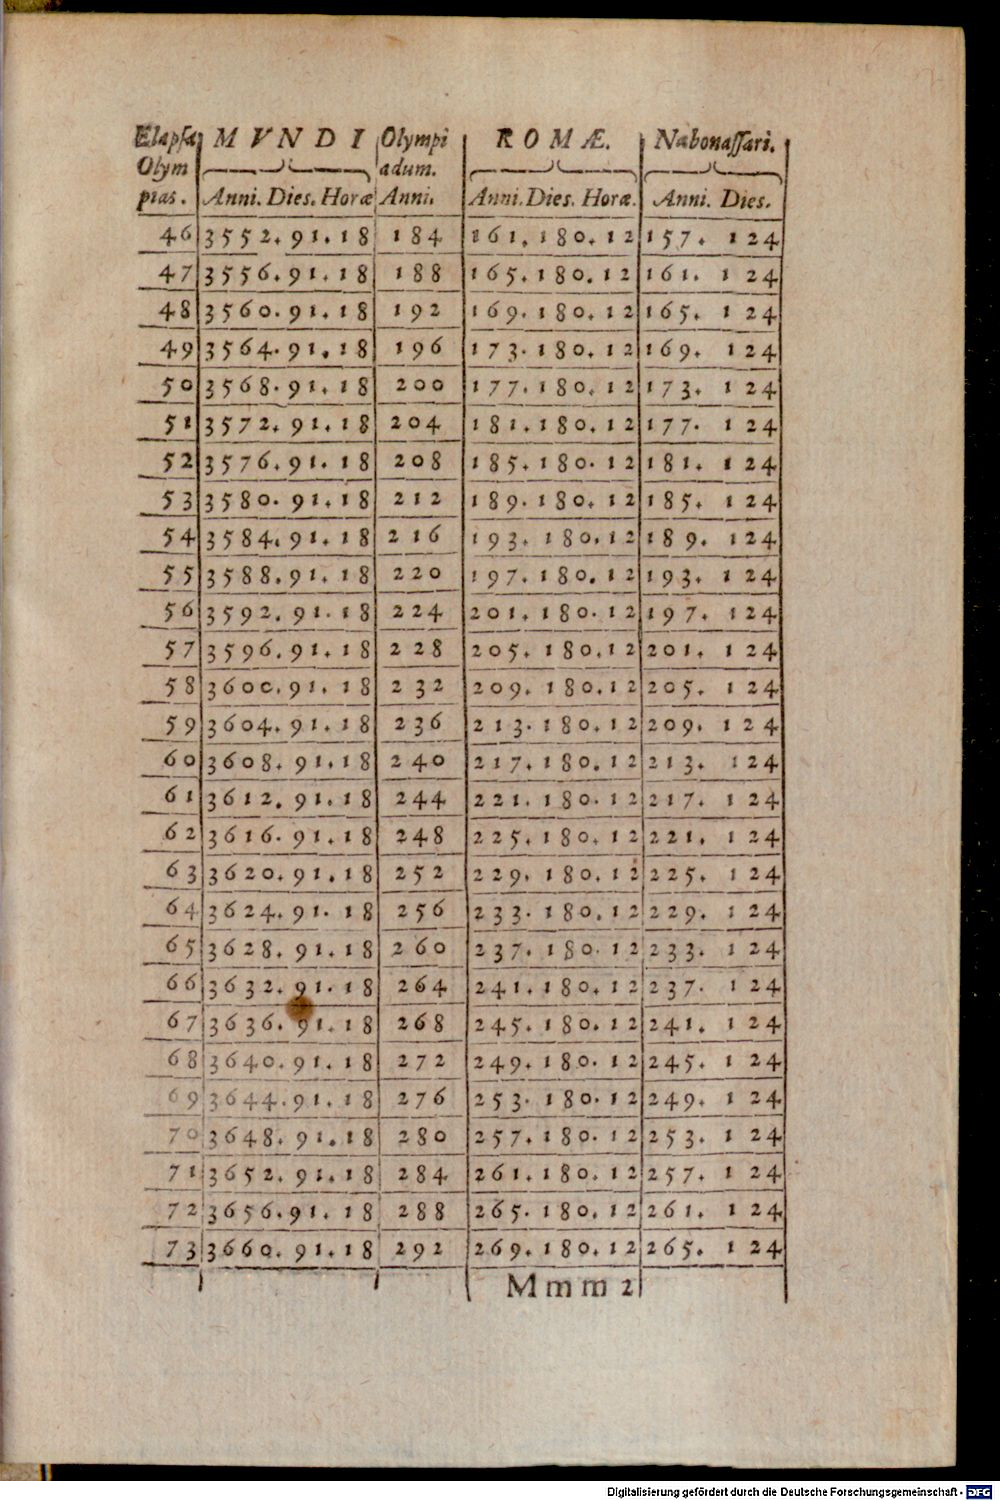 Elapsæ M V N D I Olympi R O M Æ. Nabonaſſari.
Olym adum.
pias. Anni. Dies. Horæ Anni. Anni. Dies. Horæ. Anni. Dies.
46 3552. 91. 18 184 161. 180. 12 157. 124
47 3556. 91. 18 188 165. 180. 12 161. 124
48 3560. 91. 18 192 169. 180. 12 165. 124
49 3564. 91. 18 196 173. 180. 12 169. 124
50 3568. 91. 18 200 177. 180. 12 173. 124
51 3572. 91. 18 204 181. 180. 12 177. 124
52 3576. 91. 18 208 185. 180. 12 181. 124
53 3580. 91. 18 212 189. 180. 12 185. 124
54 3584. 91. 18 216 193. 180. 12 189. 124
55 3588. 91. 18 220 197. 180. 12 193. 124
56 3592. 91. 18 224 201. 180. 12 197. 124
57 3596. 91. 18 228 205. 180. 12 201. 124
58 3600. 91. 18 232 209. 180. 12 205. 124
59 3604. 91. 18 236 213. 180. 12 209. 124
60 3608. 91. 18 240 217. 180. 12 213. 124
61 3612. 91. 18 244 221. 180. 12 217. 124
62 3616. 91. 18 248 225. 180. 12 221. 124
63 3620. 91. 18 252 229. 180. 12 225. 124
64 3624. 91. 18 256 233. 180. 12 229. 124
65 3628. 91. 18 260 237. 180. 12 233. 124
66 3632. 91. 18 264 241. 180. 12 237. 124
67 3636. 91. 18 268 245. 180. 12 241. 124
68 3640. 91. 18 272 249. 180. 12 245. 124
69 3644. 91. 18 276 253. 180. 12 249. 124
70 3648. 91. 18 280 257. 180. 12 253. 124
71 3652. 91. 18 284 261. 180. 12 257. 124
72 3656. 91. 18 288 265. 180. 12 261. 124
73 3660. 91. 18 292 269. 180. 12 265. 124
Mmm 2
Digitalisierung gefördert durch die Deutsche Forschungsgemeinschaft - DFG